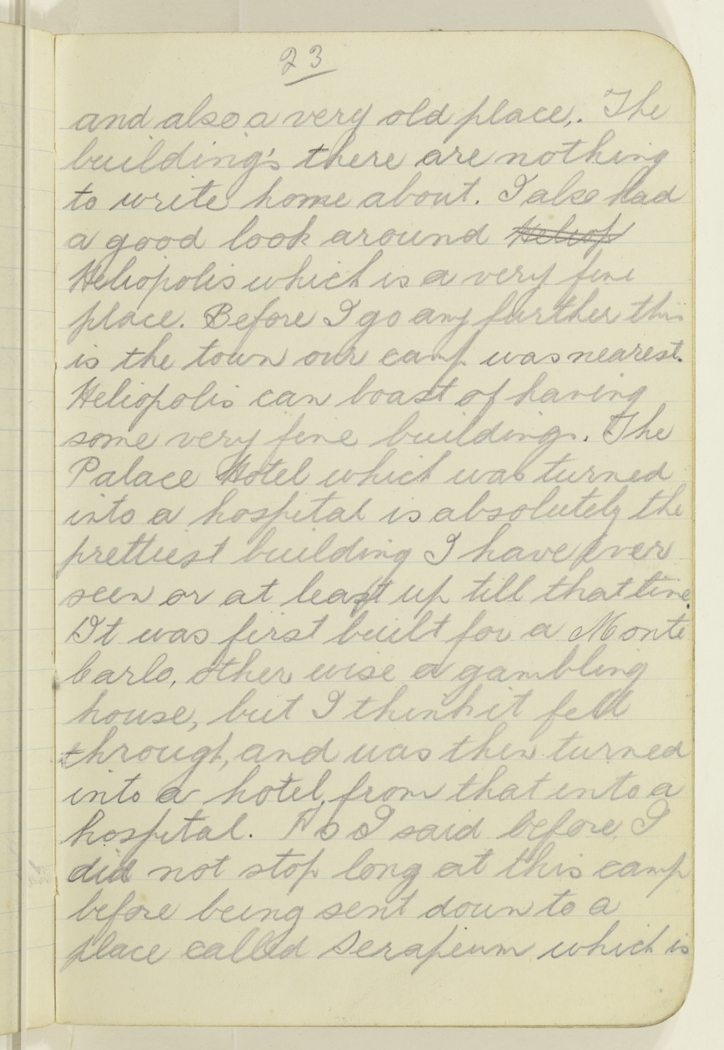 23
and also a very old place,. The
building's there are nothing
to write home about. I also had
a good look around Heliop
Heliopolis which is a very fine
place. Before I go any further this
is the town our camp was nearest.
Heliopolis can boast of having
some very fine buildings. The
Palace Hotel which was turned
into a hospital is absolutely the
prettiest building I have ever
seen or at least up till that time.
It was first built for a Monte
Carlo, other wise a gambling
house, but I think it fell
through, and was then turned
into a hotel, from that into a
hospital. As I said before, I
did not stop long at this camp
before being sent down to a
place called Serapeum which is